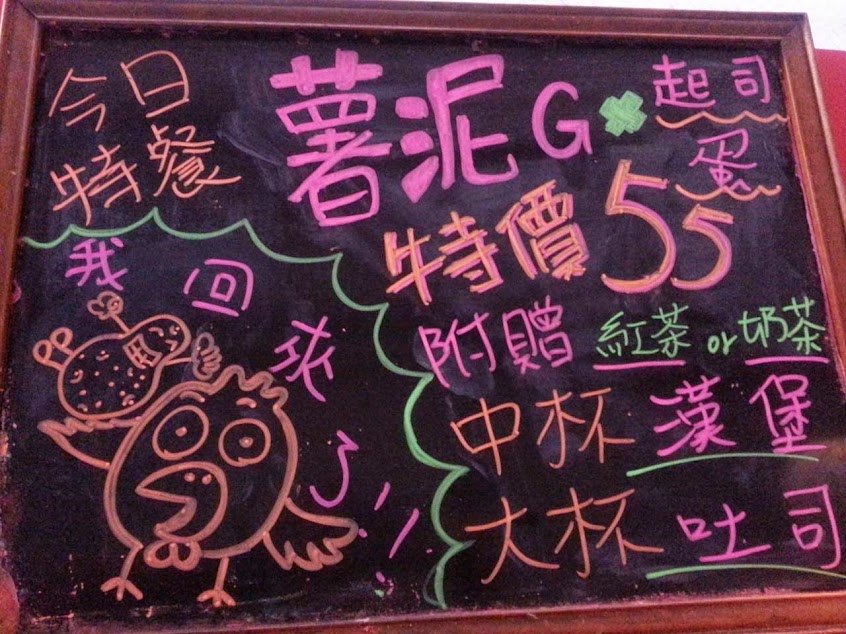 今日
特餐
薯泥G
起司
蛋
特價55
我回來了!!
附贈 紅茶 or 奶茶
中杯 漢堡
大杯 吐司